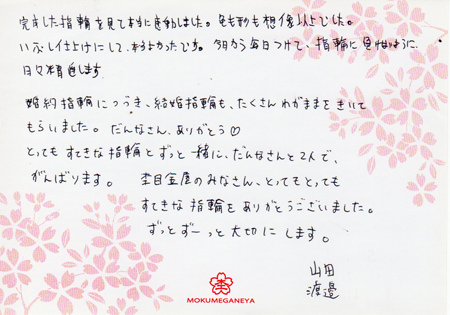 完成した指輪を見て本当に感動しました。色も形も想像以上でした。
いぶし仕上げにして、本当よかったです。今日から毎日つけて、指輪に負けないように、
日々精進します。
婚約指輪につづき、結婚指輪も、たくさんわがままをきいて
もらいました。だんなさん、ありがとう♡
とってもすてきな指輪とずっと一緒に、だんなさんと2人で、
がんばります。 杢目金屋のみなさん、とってもとっても
すてきな指輪をありがとうございました。
ずっとずーっと大切にします。
山田
渡邉
杢
MOKUMEGANEYA